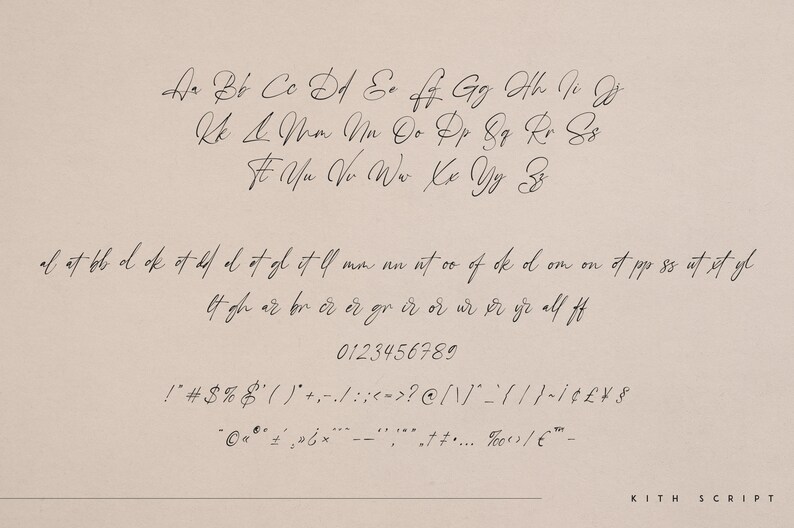 Aa Bb Cc Dd Ee Ff Gg Hh Ii Jj
Kk Ll Mm Nn Oo Pp Qq Rr Ss
Tt Uu Vv Ww Xx Yy Zz
al at bb cl ck ct dd el et gl it ll mm nn nt oo of ok ol om on ot pp ss ut xt yl
lt gh ar br cr er gr ir or ur xr yr all ff
0123456789
!"#$%&'()*+,-./:;<=>?@[\]^_`{|}~¡¢£¥§
¨©«®°±´¸»¿×
KITH SCRIPT